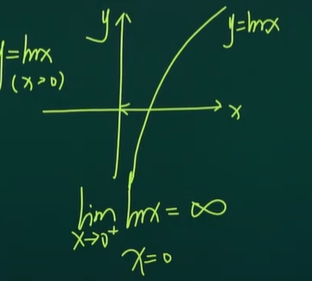 y=lnx
(x>0)
y
y=lnx
x
lim lnx = ∞
x→0⁺
x=0